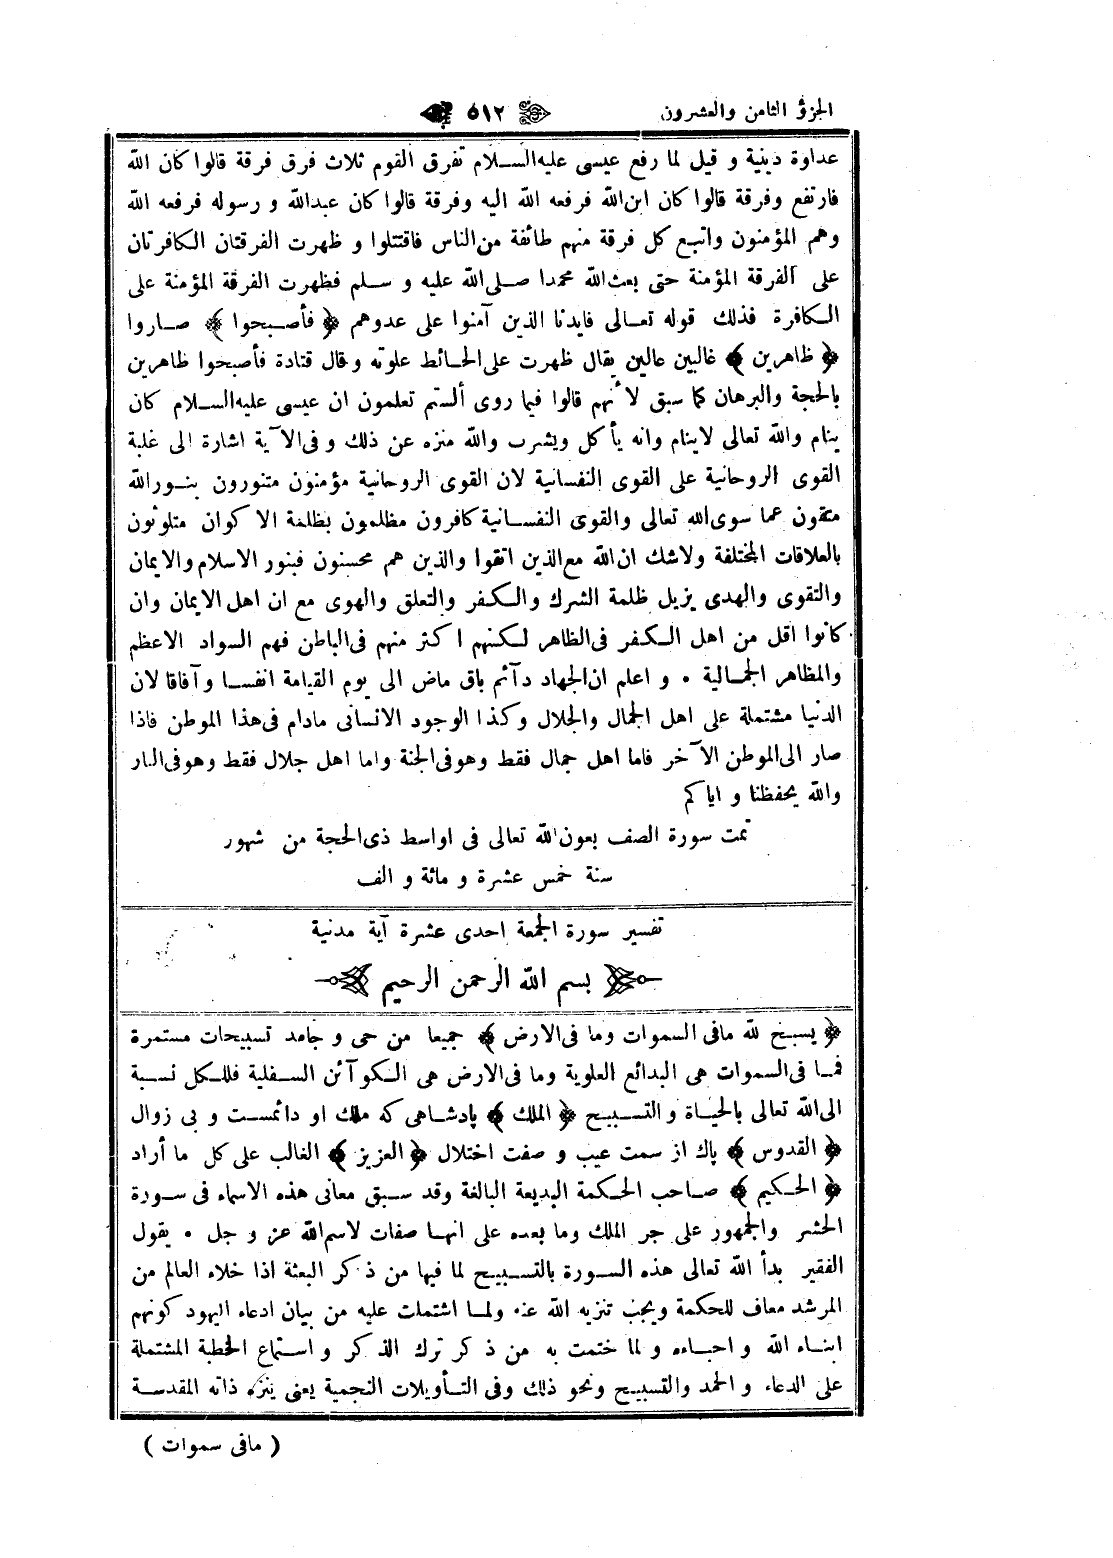 الجزؤ الثامن والعشرون ٥١٢
عداوة دينية و قيل لما رفع عيسى عليه السـلام تفرق القوم ثلاث فرق فرقة قالوا كان الله
فارتفع وفرقة قالوا كان ابن الله فرفعه الله اليه وفرقة قالوا كان عبدالله و رسوله فرفعه الله
وهم المؤمنون واتبع كل فرقة منهم طائفة من الناس فاقتتلوا و ظهرت الفرقتان الكافرتان
على الفرقة المؤمنة حتى بعث الله محمدا صلى الله عليه و سلم فظهرت الفرقة المؤمنة على
الكافرة فذلك قوله تعالى فايدنا الذين آمنوا على عدوهم ﴿ فأصبحوا ﴾ صاروا
﴿ ظاهرين ﴾ غالبين عالين يقال ظهرت على الحائط علوته وقال قتادة فأصبحوا ظاهرين
بالحجة والبرهان كما سبق لأنهم قالوا فيما روى ألستم تعلمون ان عيسى عليه السلام كان
ينام والله تعالى لاينام وانه يأكل ويشرب والله منزه عن ذلك و فى الآية اشارة الى غلبة
القوى الروحانية على القوى النفسانية لان القوى الروحانية مؤمنون متنورون بنور الله
متقون عما سوى الله تعالى والقوى النفسانية كافرون مظلمون بظلمة الاكوان متلوثون
بالعلاقات المختلفة ولاشك ان الله مع الذين اتقوا والذين هم محسنون فبنور الاسلام والايمان
والتقوى والهدى يزيل ظلمة الشرك والكفر والتعلق والهوى مع ان اهل الايمان وان
كانوا اقل من اهل الكفر فى الظاهر لكنهم اكثر منهم فى الباطن فهم السواد الاعظم
والمظاهر الجمالية • و اعلم ان الجهاد دآئم باق ماض الى يوم القيامة انفسا و آفاقا لان
الدنيا مشتملة على اهل الجمال والجلال وكذا الوجود الانسانى مادام فى هذا الموطن فاذا
صار الى الموطن الآخر فاما اهل جمال فقط وهو فى الجنة واما اهل جلال فقط وهو فى النار
والله يحفظنا و اياكم
تمت سورة الصف بعون الله تعالى فى اواسط ذى الحجة من شهور
سنة خمس عشرة و مائة و الف
تفسير سورة الجمعة احدى عشرة آية مدنية
بسم الله الرحمن الرحيم
﴿ يسبح لله مافى السموات وما فى الارض ﴾ جميعا من حى و جامد تسبيحات مستمرة
فما فى السموات هى البدائع العلوية وما فى الارض هى الكوآئن السفلية فللكل نسبة
الى الله تعالى بالحياة و التسبيح ﴿ الملك ﴾ پادشاهى كه ملك او دائمست و بى زوال
﴿ القدوس ﴾ پاك از سمت عيب و صفت اختلال ﴿ العزيز ﴾ الغالب على كل ما أراد
﴿ الحكيم ﴾ صاحب الحكمة البديعة البالغة وقد سبق معانى هذه الاسماء فى سورة
الحشر والجمهور على جر الملك وما بعده على انها صفات لاسم الله عز و جل • يقول
الفقير بدأ الله تعالى هذه السورة بالتسبيح لما فيها من ذكر البعثة اذا خلاء العالم من
المرشد معاف للحكمة ويجب تنزيه الله عنه ولما اشتملت عليه من بيان ادعاء اليهود كونهم
ابناء الله و احباءه و لما ختمت به من ذكر ترك الذكر و استماع الخطبة المشتملة
على الدعاء و الحمد والتسبيح ونحو ذلك وفى التأويلات النجمية يعنى ينزه ذاته المقدسة
( مافى سموات )